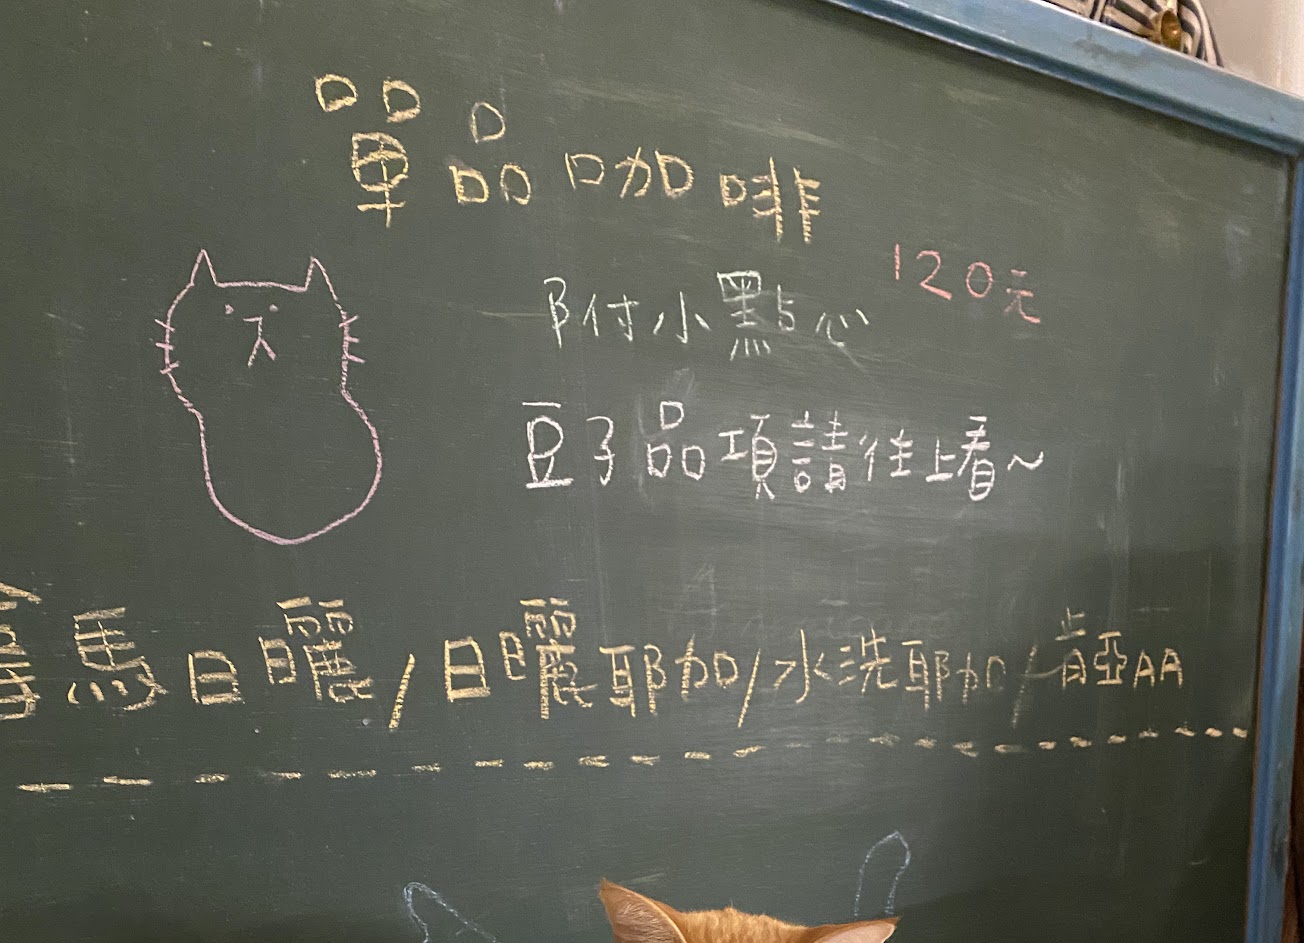 單品咖啡
120元
附小點心
豆子品項請往上看~
馬日曬/日曬耶加/水洗耶加/肯亞AA